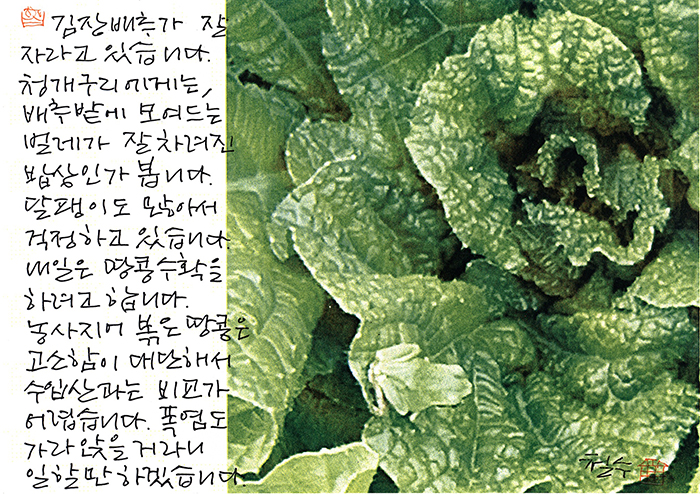 김장배추가 잘
자라고 있습니다.
청개구리에게는,
배추밭에 모여드는
벌레가 잘 차려진
밥상인가 봅니다.
달팽이도 많아서
걱정하고 있습니다
내일은 땅콩수확을
하려고 합니다.
농사지어 볶은 땅콩은
고소함이 대단해서
수입산과는 비교가
어렵습니다. 폭염도
가라앉을거라니
일할만 하겠습니다.
철수